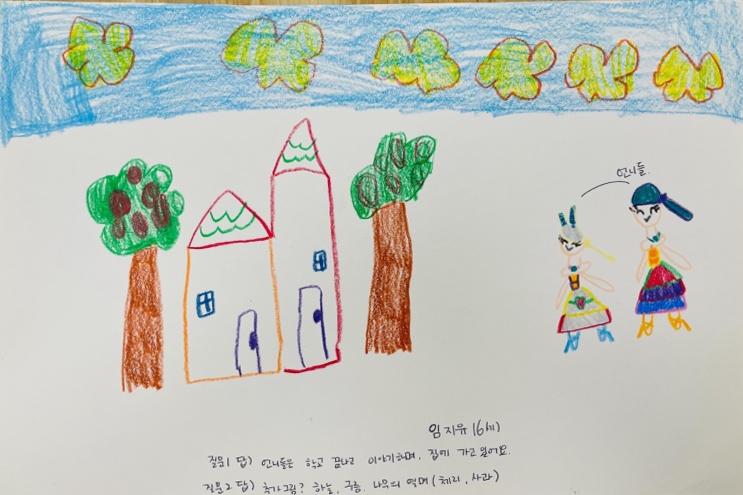 언니들.
임지유 (6세)
질문1 답) 언니들은 학교 끝나고 이야기하며, 집에 가고 있어요.
질문2 답) 추가그림? 하늘, 구름, 나무의 열매 (체리, 사과)